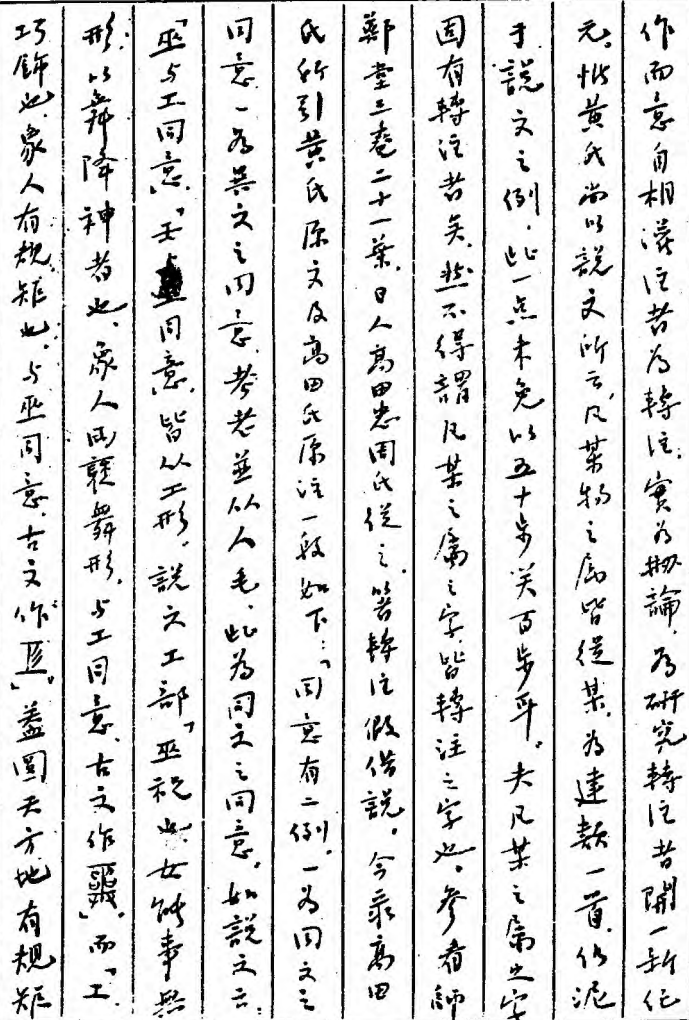 作而意自相灌注者為轉注，實為搠論，為研究轉注者開一新纪
元。惜黄氏尚以說文所云，凡某物之属皆從某，為建類一首，仍泥
于說文之例，此一点未免以五十步笑百步耳。夫凡某之属之字
固有轉注者矣，然不得謂凡某之属之字，皆轉注之字也。參看師
鄭堂三卷二十一葉，日人高田忠周氏從之，箸轉注假借説。今录高田
氏所引黄氏原文及高田氏原注一段如下：「同意有二例，一為同文之
同意，一為異文之同意，考老並从人毛，此為同文之同意，如說文云：
「巫与工同意，「王与巫同意，皆从工形，說文工部「巫祝也，女能事無
形，以舞降神者也，象人兩褎舞形，与工同意，古文作𢍮，而「工，
巧飾也，象人有規矩也，与巫同意，古文作𢒄」，盖圓天方地有規矩